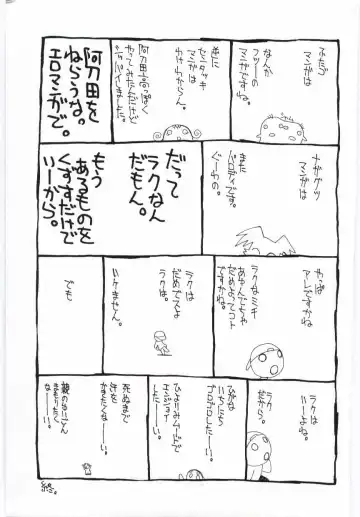 ふたご
マンガは
なんか
フツーの
マンガですね。
逆に
センタッキ
マンガは
わけわからん。
阿刀田高っぽく
やってみたんだけど
シッパイしました。
阿刀田を
ねらうな。
エロマンガで。
ナガグツ
マンガは
またに
パロディです。
ぐーわの。
だって
ラクなん
だもん。
もう
あるものを
くずすだけで
いーから。
やっぱ
アレですかね
ラクなミチ
あゆんじゃ
だめよってコト
ですかね。
ラクは
だめでスよ
ラクは。
いけません。
でも
ラクは
いーよね。
ラク
だから。
ひがな
いちにち
ゴロゴロしたーい。
ひよりみムードで
エンジョイ
したーい。
死ぬまで
きを
かせたくなーい。
親のなーどん
まもりたく
なーい。
終。